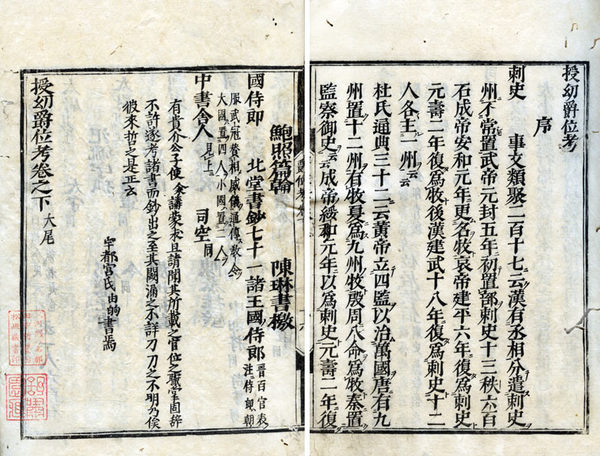 授幼爵位考
序
刺史 事文類聚二百十七云漢有丞相分遣刺史
州不常置武帝元封五年初置部刺史十三秩六百
石成帝安和元年更名牧哀帝建平六年復爲刺史
元壽二年復爲牧後漢建武十八年復爲刺史十二
人各主一州云云
杜氏通典三十二云黃帝立四監以治萬國唐有九
州置十二州有牧夏爲九州牧殷周八命爲牧秦置
監察御史云云成帝綏和元年以爲刺史元壽二年復
鮑照篇翰 陳琳書檄
國侍郎 北堂書鈔七十一諸王國侍郎 晉百官表注侍郎朝
服武冠 威儀通傳教令
大國置四人小國置二人
中書舍人 見上 司空 同
有貴介公子使余講蒙求且請聞其所載之官位之職掌固辭
不許逐考諸書而鈔出之至其闕漏之不詳 之不明爲俟
彼來哲之是正云
宇都宮氏由的書焉
授幼爵位考卷之下 大尾